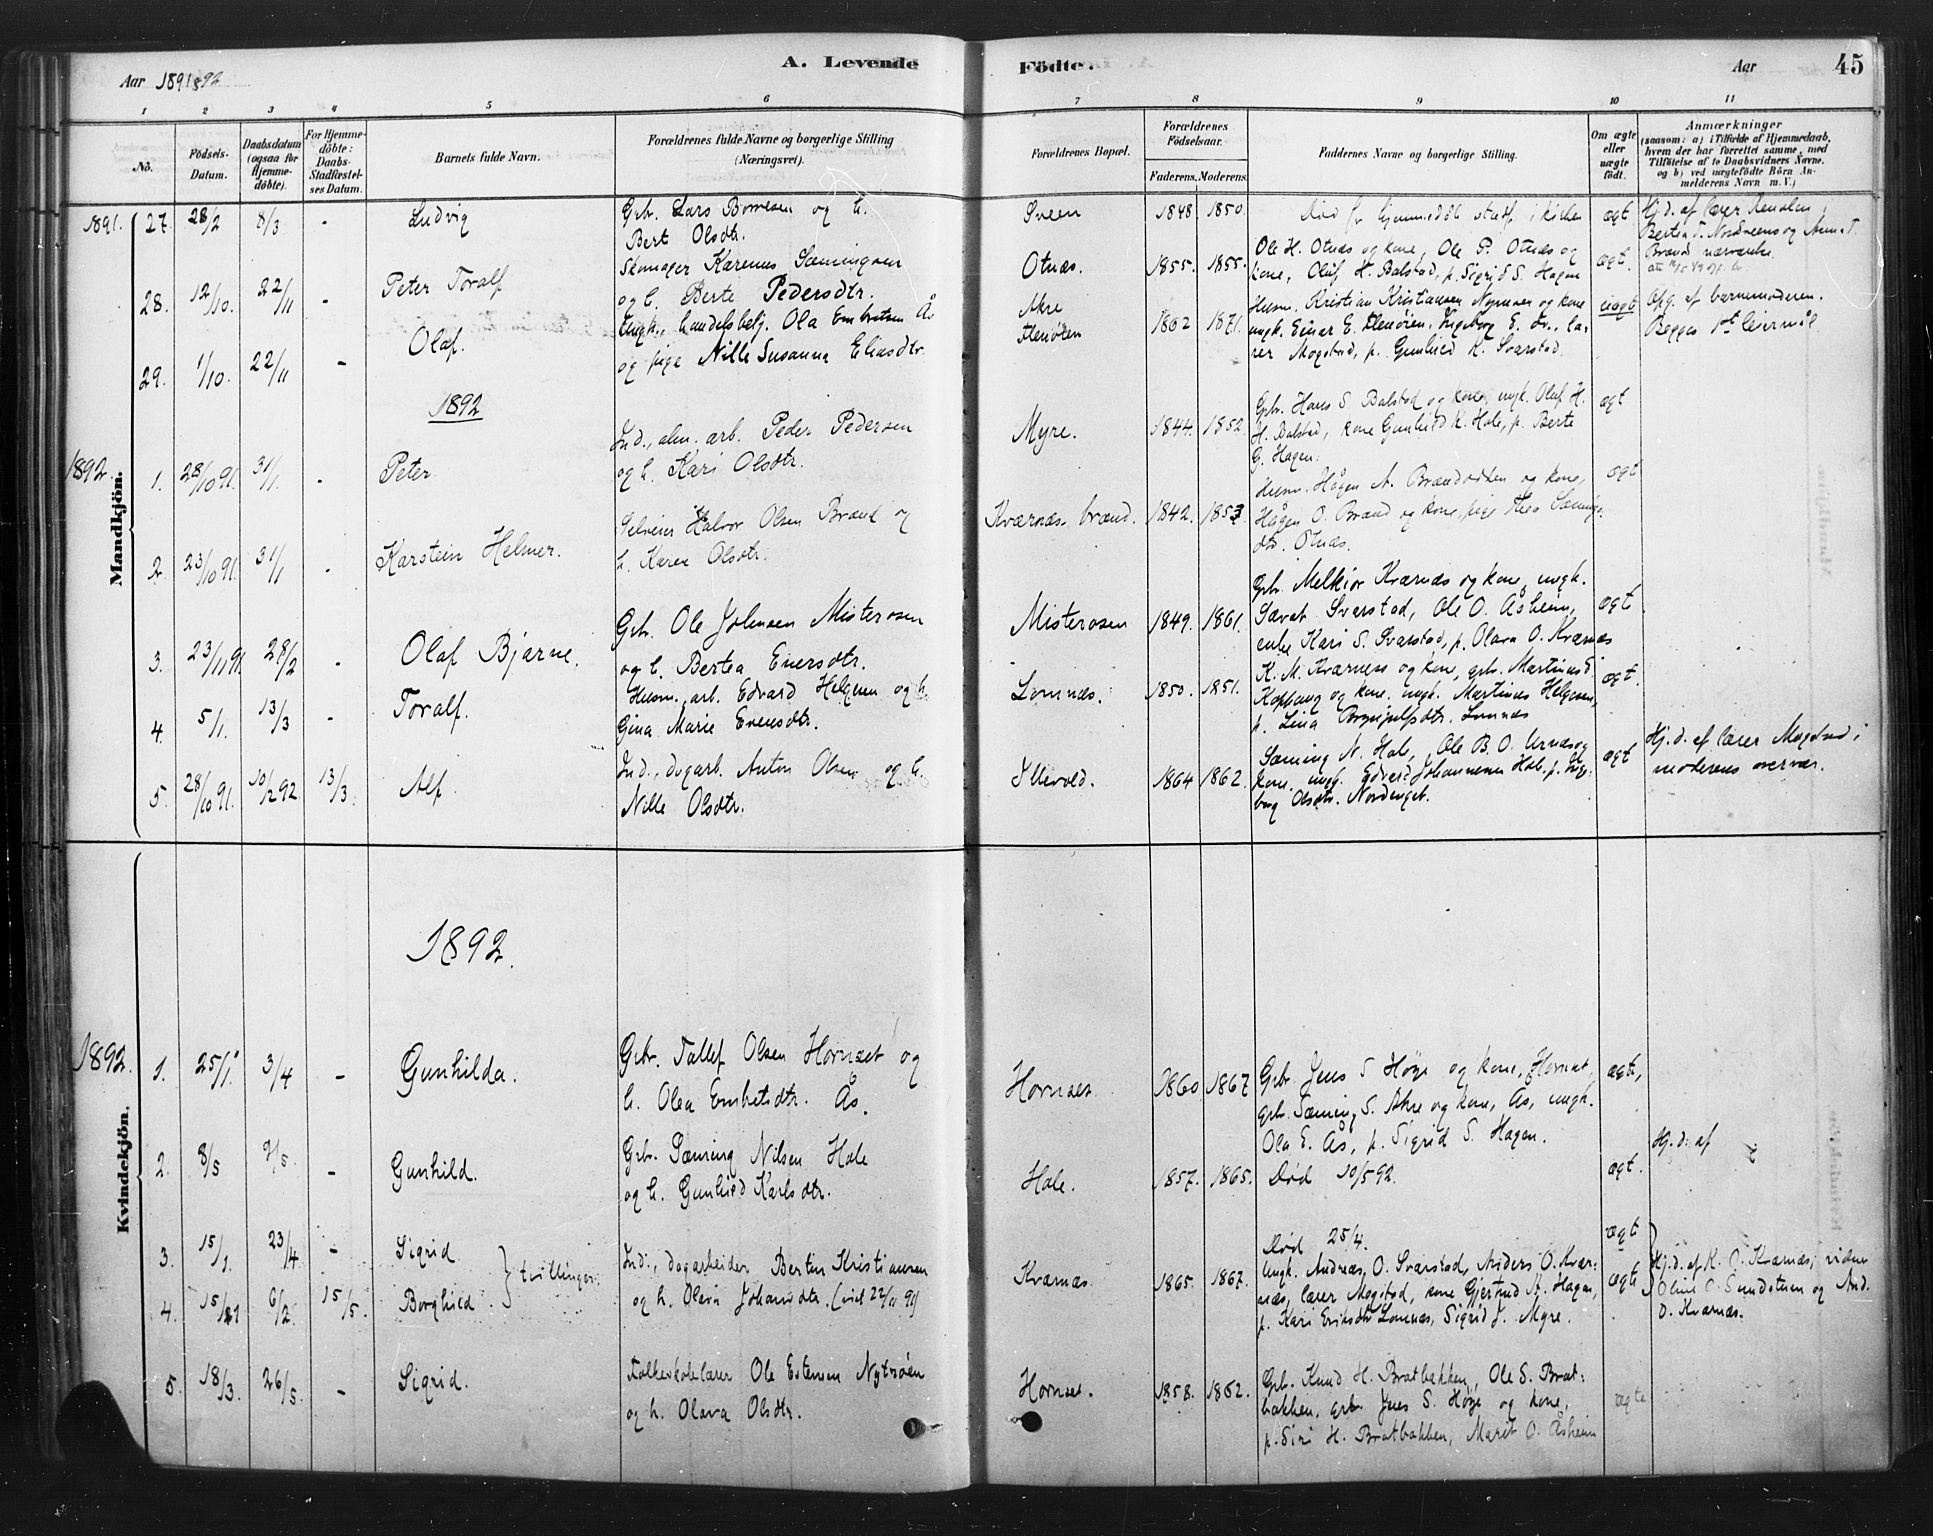 Aar 1891 & 92
A. Levende Födte.
Aar
45
1 2 3 4 5 6 7 8 9 10 11
No.
Födsels-Datum.
Daabsdatum (ogsaa for Hjemmedöbte).
For Hjemmedöbte: Daabs-Stadfæstelses Datum.
Barnets fulde Navn.
Forældrenes fulde Navne og borgerlige Stilling (Næringsvei).
Forældrenes Bopæl.
Forældrenes Födselsaar.
Faderens. Moderens.
Faddernes Navne og borgerlige Stilling.
Om ægte eller uægte födt.
Anmærkninger
(saasom: a) i Tilfælde af Hjemmedaab, hvem der har forrettet samme, med Tilföielse af to Daabsvidners Navne, og b) ved uægtefödte Börn Anmelderens Navn m. V.)
Mandkjön.
1891. 27. 28/2 8/3 - Ludvig
Gbr. Lars Borresen og h.
Bert Olsdtr.
Sveen 1848 1850.
ægt
Hj. d. af lærer
28. 12/10. 22/11 - Peter Toralf
Skomager Karenus Sæmingsen
og h. Berte Pedersdtr.
Otnæs. 1855. 1855.
Ole H. Otnæs og kone, Ole P. Otnæs og
kone, Oluf H. Balstad, p. Sigrid S. Hagen
ægt.
29. 1/10. 22/11 - Olaf.
Ungk., handelsbetj. Ola Embretsen Ås
og pige Nille Susanna Eliasdtr.
Akre
1862 1871.
Husm. Kristian Kristiansen og kone
ungk. Einar E.
Mogstad, p. Gunhild K. Svarstad.
uægt
Opg. af barnemoderen.
Begges 1st leiermål
1892
1892. 1. 28/10 91. 31/1. - Peter.
Ind., alm. arb. Peder Pedersen
og h. Kari Olsdtr.
Myre. 1844. 1852.
Gbr. Hans S. Balstad og kone, ungk. Oluf H.
H. Balstad, kone Gunhild K. Hole, p. Berte
G. Hagen.
ægt
2. 23/10 91. 31/1 - Karstein Helmer.
Selveier Halvor Olsen Brænd og
h. Karen Olsdtr.
Kværnæs brænd. 1842. 1853.
Husm. Hågen A. og kone,
Hågen O. Brænd og kone, pige
dtr. Otnæs.
ægt
3. 23/11 91. 28/2 - Olaf Bjarne.
Gbr. Ole Johnsen Misterosen
og h. Bertea Eversdtr.
Misterosen 1849. 1861.
Gbr. Melkior Kværnæs og kone, ungk.
Svarstad, Ole O. Åsheim,
enke Kari S. Svarstad, p. Olava O. Kværnæs
ægt
4. 5/1. 13/3 - Toralf.
Husm., arb. Edvard Helgesen og h.
Gina Marie Evensdtr.
Lomnæs. 1850. 1851.
K. M. Kværness og kone, gbr. Martinus
Koppang og kone, ungk. Martinus Helgesen,
p. Lina Brynjulfsdtr. Lomnæs
ægt.
5. 28/10 91. 10/2 92 13/3 Alf.
Ind., dagarb. Anton Olsen og h.
Nille Olsdtr.
1864 1862.
Sæming N. Hole, Ole B. O. Urnæs og
kone, ungk. Edvard Johannesen Hole, p. Inge-
borg Olsdtr. Nordenget.
ægt
Hj. d. af lærer Mogstad i
moderens overvær.
Kvindekjön.
1892.
1892. 1. 25/1. 3/4 - Gunhilda.
Gbr. Tollef Olsen Hornset og
h. Olea Embretsdtr. Ås.
Hornset 1860 1867
Gbr. Jens S. Høye og kone, Hornset,
gbr. Sæming S. Akre og kone, Ås, ungk.
Ola E. Ås, p. Sigrid S. Hagen.
ægte,
2. 8/5 9/5. - Gunhild.
Gbr. Sæming Nilsen Hole
og h. Gunhild Karlsdtr.
Hole. 1857. 1865.
Død 10/5 92.
ægt.
Hj. d. af
3. 15/1 23/4 - Sigrid
4. 15/1 6/2. 15/5. Borghild
tvillinger.
Ind., dagarbeider Bertin Kristiansen
og h. Olava Johansdtr. (viet 22/11 91)
Kværnæs 1865. 1867.
Død 25/4.
Ungk. Andreas O. Svarstad, Anders O. Kvær-
næs, lærer Mogstad, kone Gjertrud A. Hagen,
p. Kari Eriksdtr Lomnæs, Sigrid J. Myre.
ægt
ægte
Hj. d. af K. O. Kværnæs; vidner
Oline O. Sundsteen og And.
O. Kværnæs.
5. 18/3. 26/5 - Sigrid.
Folkeskolelærer Ole Estensen Nytrøen
og h. Olava Olsdtr.
Hornset. 1858. 1862.
Gbr. Knud H. Bratbakken, Ole S. Brat-
bakken, gbr. Jens S. Høye og kone,
p. Siri H. Bratbakken, Marit O. Åsheim
ægte